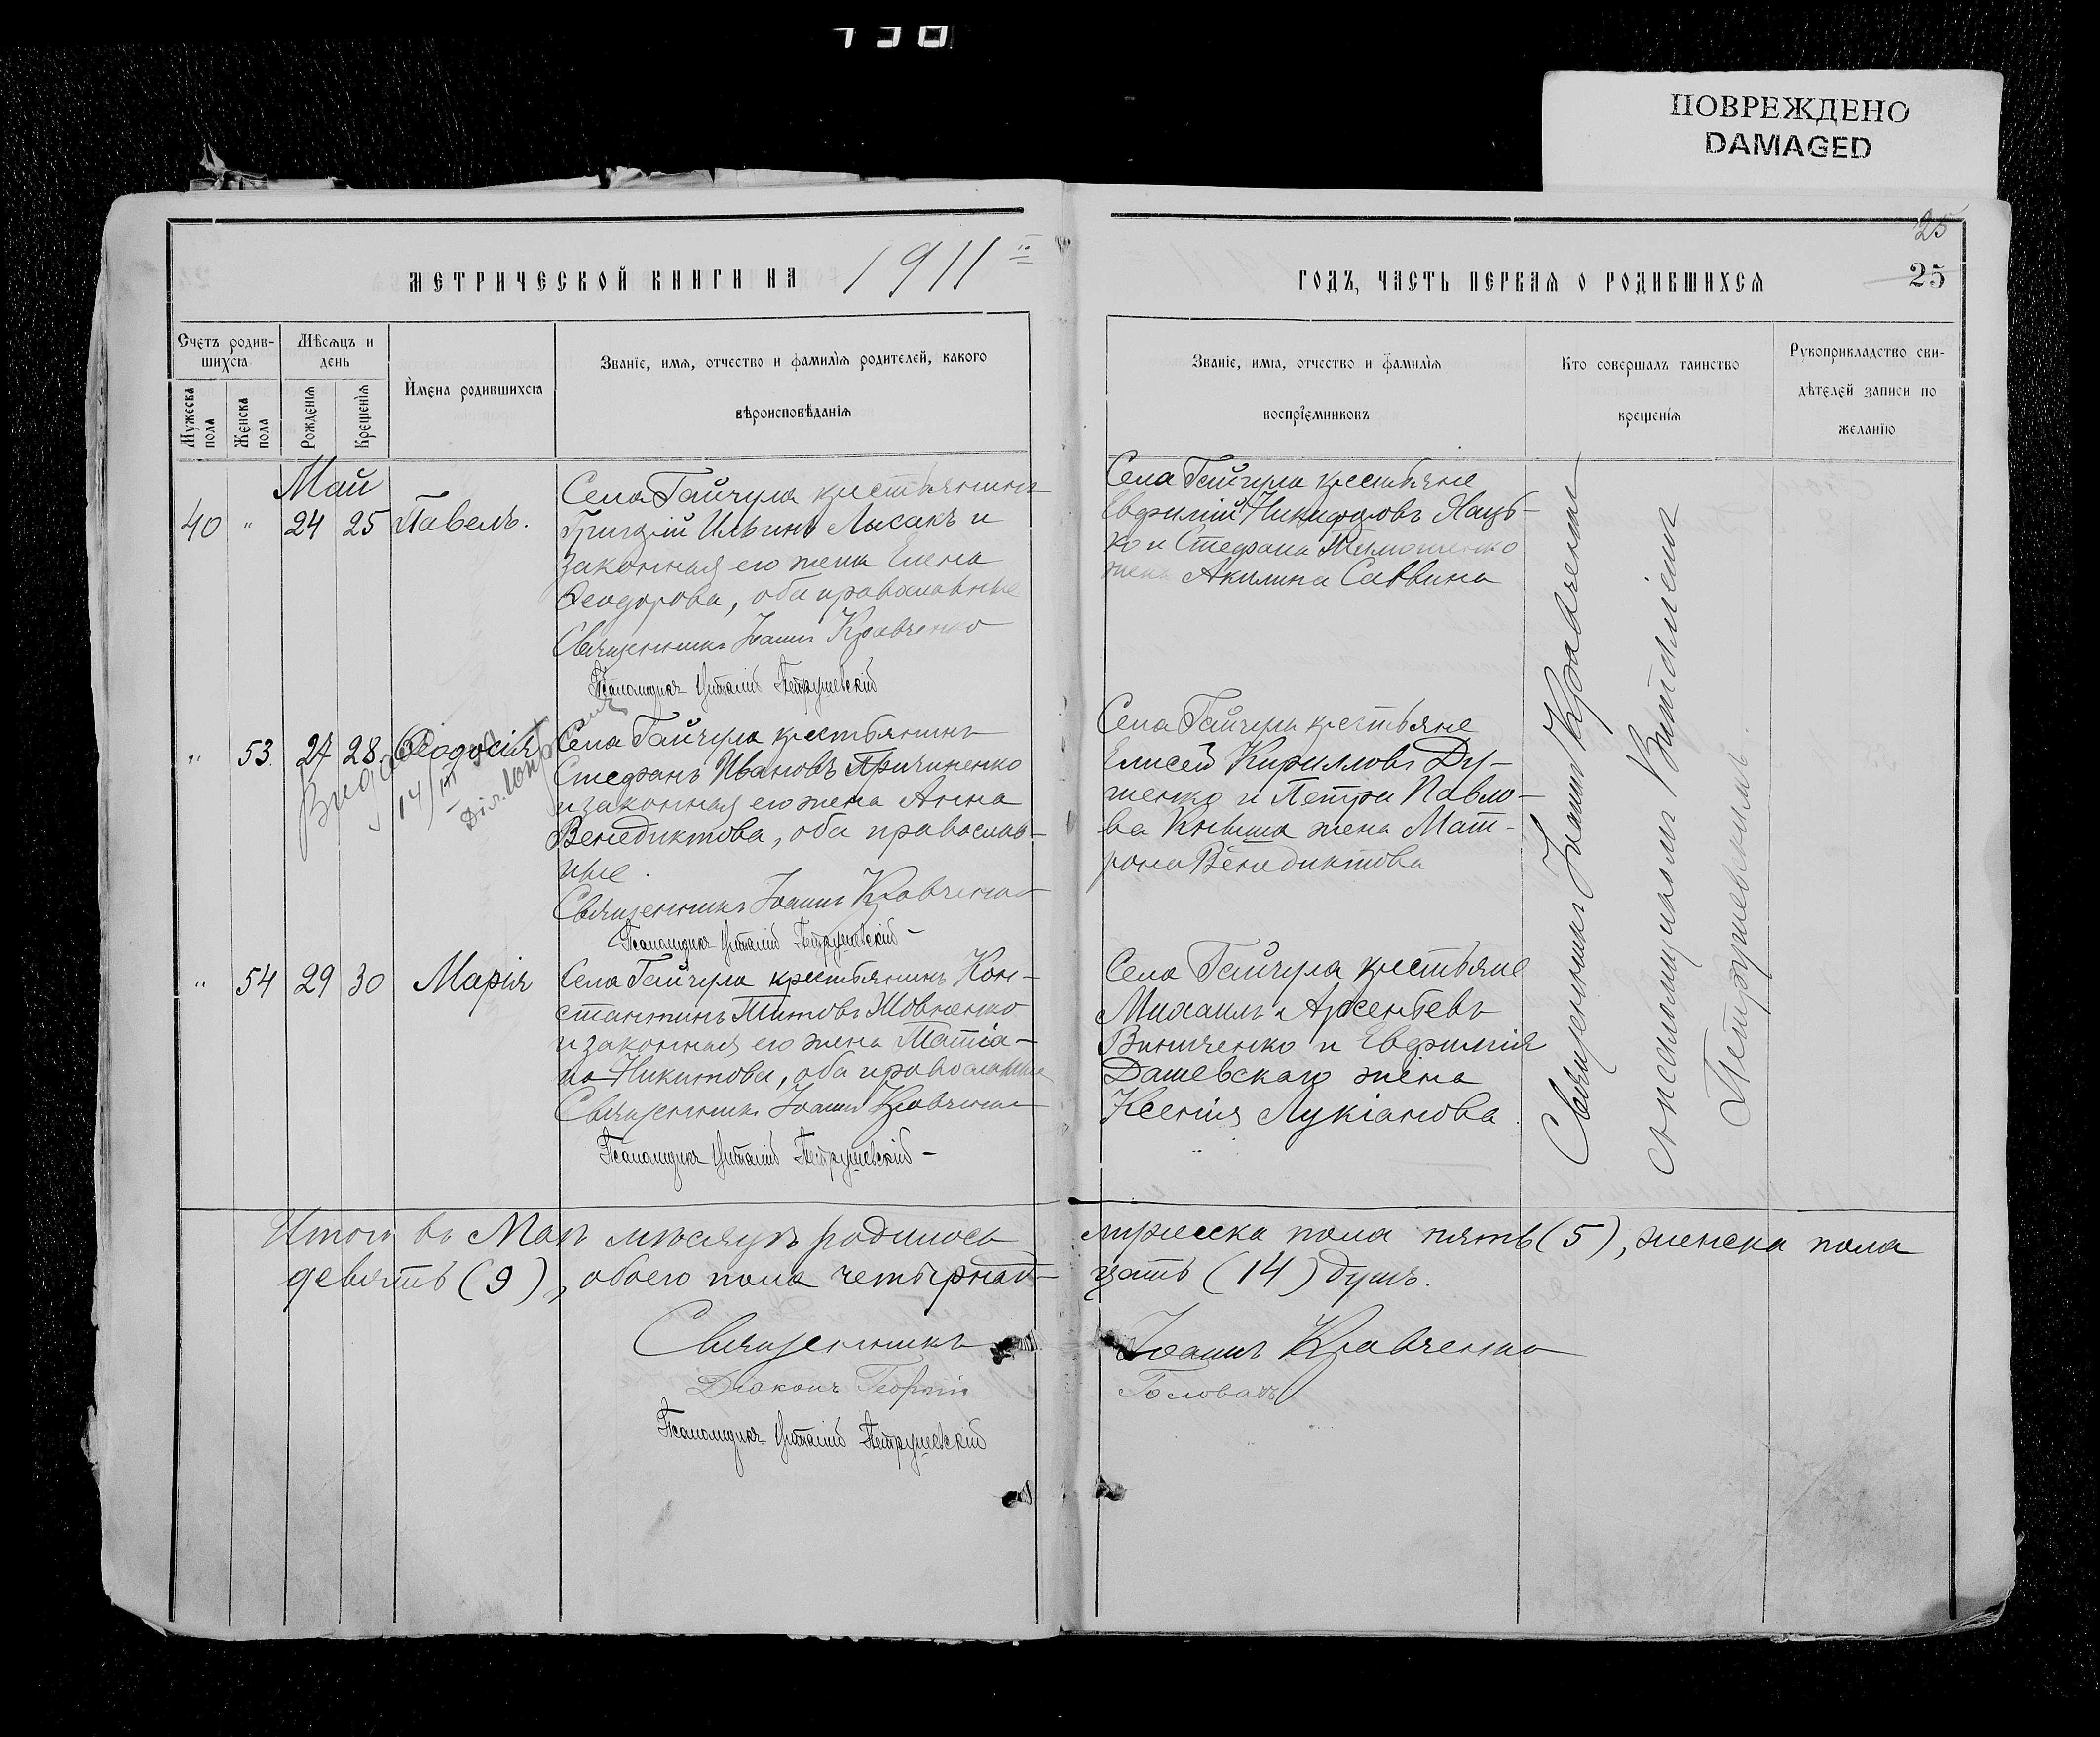 ПОВРЕЖДЕНО
DAMAGED
25
МЕТРИЧЕСКОЙ КНИГИ НА 1911
ГОДЪ, ЧАСТЬ ПЕРВАЯ О РОДИВШИХСЯ
25
Счетъ родив-
шихся
Мужеска пола
Женска пола
Мѣсяцъ и
день
Рожденія
Крещенія
Имена родившихся
Званіе, имя, отчество и фамилія родителей, какого
вѣроисповѣданія
Званіе, имя, отчество и фамилія
воспріемниковъ
Кто совершалъ таинство
крещенія
Рукоприкладство сви-
дѣтелей записи по
желанію
Май
40 " 24 25 Павелъ.
Села Гайчула крестьянинъ
Григорій Ильинъ Лысакъ и
законная его жена Елена
Ѳеодорова, оба православные
Священникъ Іоаннъ Кравченко
Псаломщикъ Виталій Петрушевскій
Села Гайчула крестьяне
Евфимій Никифоровъ Яць-
ко и Стефана Тимошенко
жена Акилина Саввина
" 53. 27 28. Ѳеодосія
14/III
Села Гайчула крестьянинъ
Стефанъ Ивановъ Причиненко
и законная его жена Анна
Венедиктова, оба православ-
ные.
Священникъ Іоаннъ Кравченко
Псаломщикъ Виталій Петрушевскій
Села Гайчула крестьяне
Елисей Кирилловъ Ду-
шенко и Петра Павло-
ва Кныша жена Мат-
рона Венедиктова
" 54 29 30 Марія
Села Гайчула крестьянинъ Кон-
стантинъ Титовъ Шовненко
и законная его жена Татіа-
на Никитова, оба православные
Священникъ Іоаннъ Кравченко
Псаломщикъ Виталій Петрушевскій
Села Гайчула крестьяне
Михаилъ Арсеньевъ
Винниченко и Евфимія
Дашевскаго жена
Ксенія Лукіанова
Священникъ Іоаннъ Кравченко
съ псаломщикомъ Виталіемъ
Петрушевскимъ.
Итого въ Маѣ мѣсяцѣ родилось мужеска пола пять (5), женска пола
девять (9), обоего пола четырнад- цать (14) душъ.
Священникъ Іоаннъ Кравченко
Діаконъ Георгій Головахъ
Псаломщикъ Виталій Петрушевскій